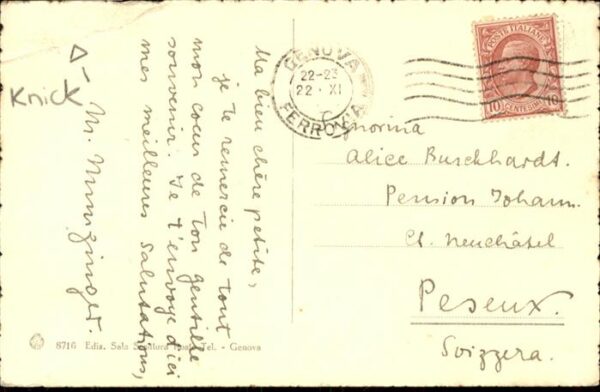 Ma bien chère petite,
je te remercie de tout
mon coeur de ton gentille
souvenir. Je t'envoye d'ici
mes meilleures salutations,
M.
Knick
GENOVA
22-23
22 · XI
FERROVIA
POSTE ITALIANE
10 CENTESIMI 10
Signorina
Alice Burckhardt.
Pension Johann.
Ct. Neuchâtel
Peseux.
Svizzera.
8716 Ediz. Sala Tel. - Genova